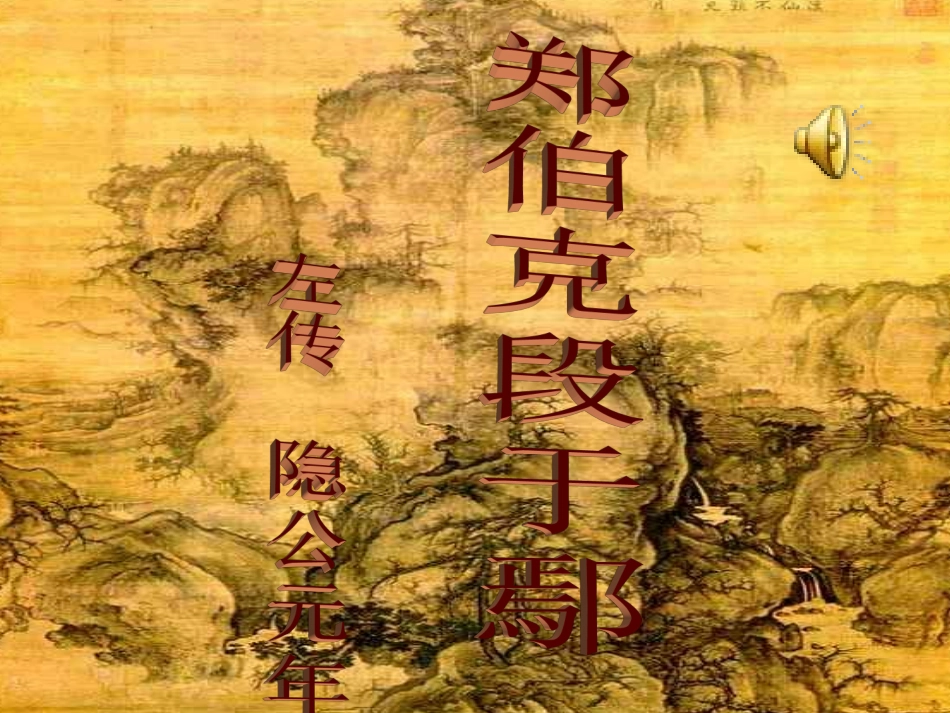 郑伯克段于鄢
左传 隐公元年